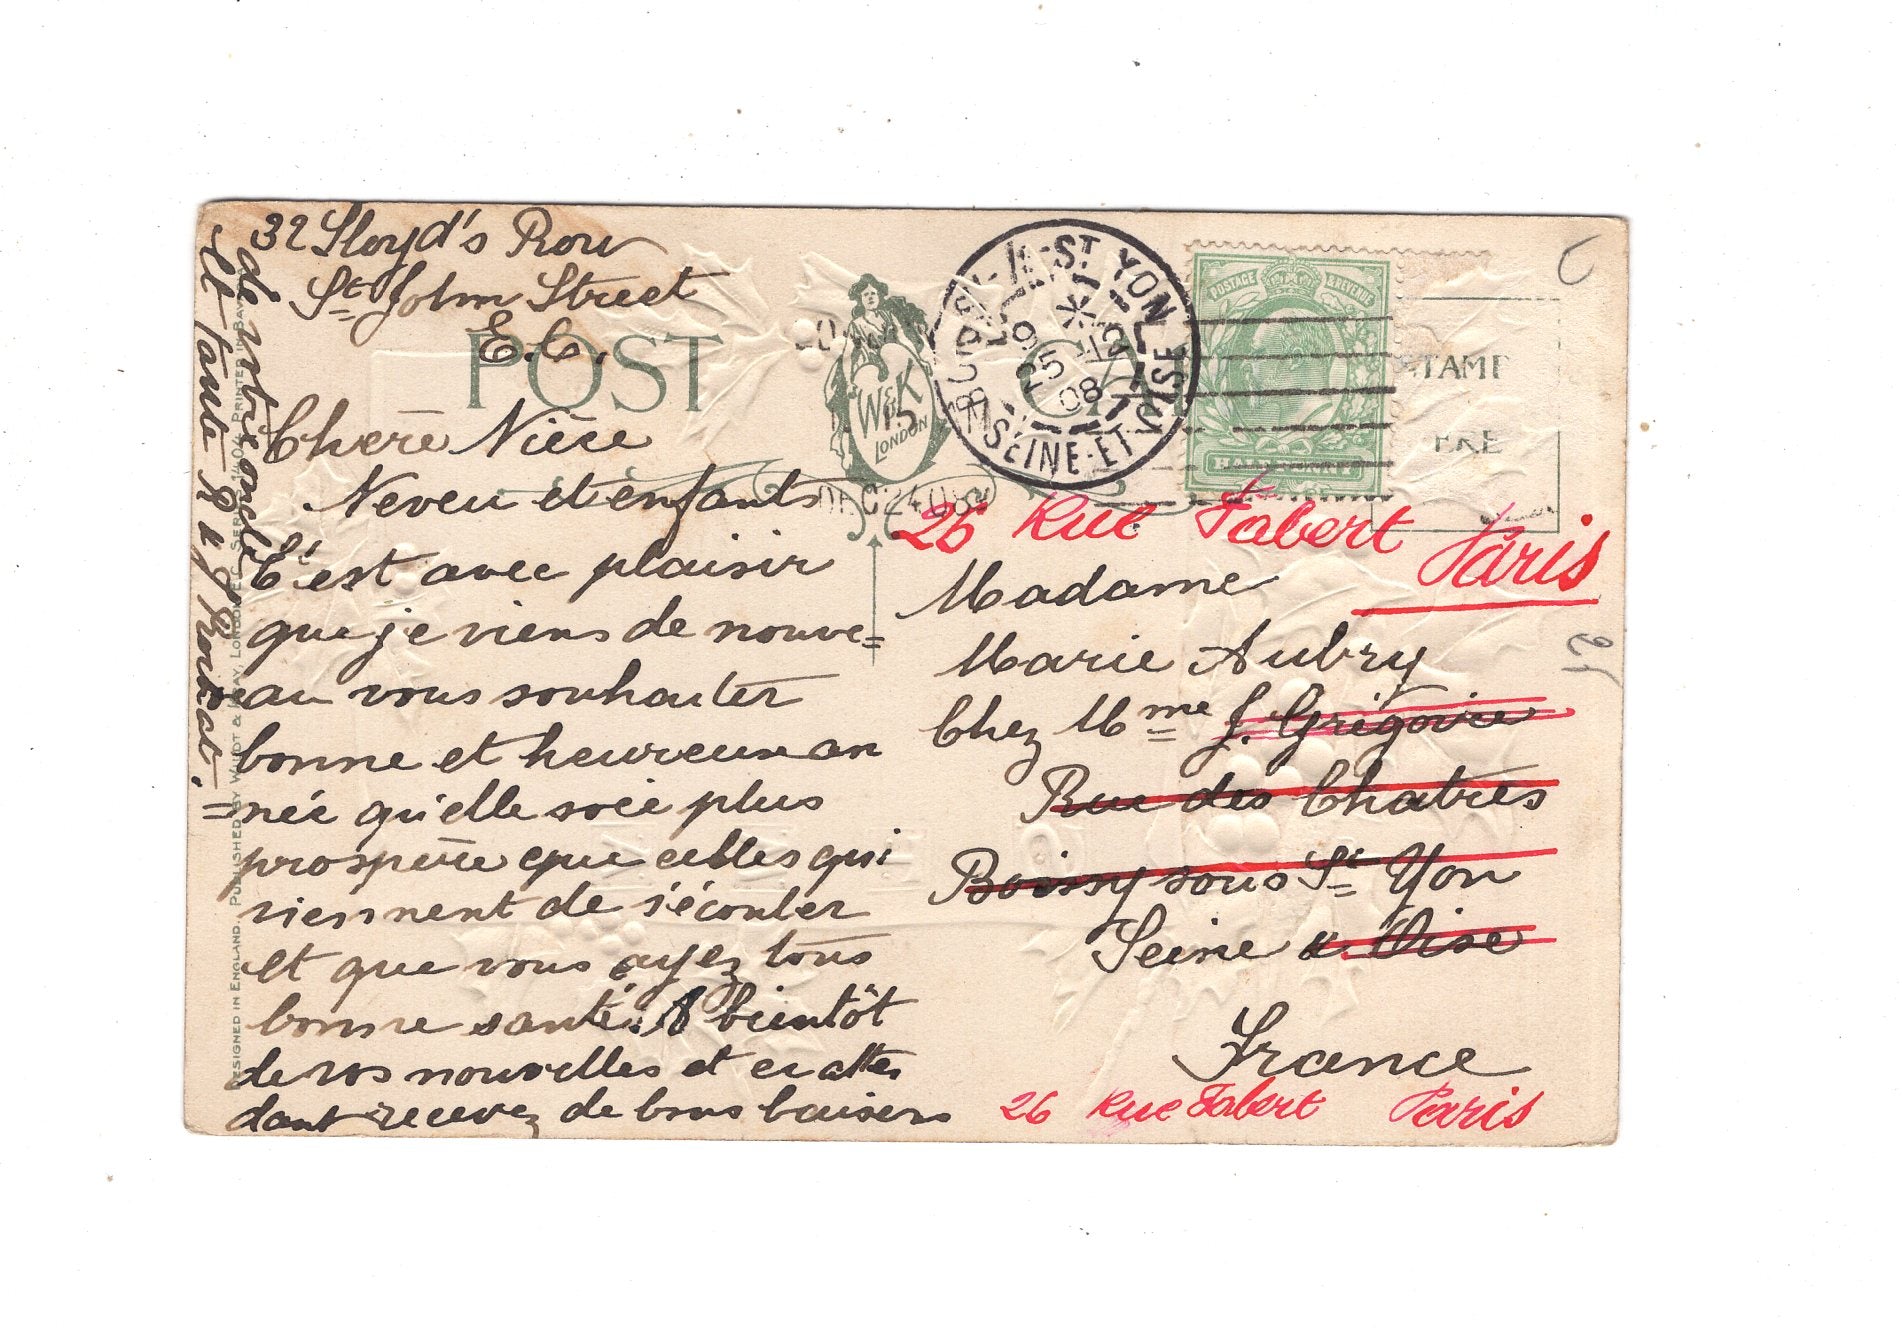 32 Lloyd's Row
St John Street
E.C.
POST CA
W & K
LONDON
Chère Nièce
Neveu et enfants
C'est avec plaisir
que je viens de nouve=
au vous souhaiter
bonne et heureuse an
=née qu'elle soie plus
prospère que celles qui
viennent de s'écouler
et que vous ayez tous
bonne santé. A bientôt
de vos nouvelles et en atten
dant recevez de bons baisers
de votre oncle
et tante
DESIGNED IN ENGLAND. PUBLISHED BY WILDT & KRAY, LONDON, E.C. SERIES 1404 PRINTED IN BAVARIA
ST YON
SEINE-ET-OISE
25
08
DEC 24 08
POSTAGE & REVENUE
HALFPENNY
STAMP
ERE
26 Rue Fabert
Paris
Madame
Marie Aubry
Chez Mme J. Grégoire
Rue des Chatres
Boissy sous St Yon
Seine & Oise
France
26 Rue Fabert Paris
25